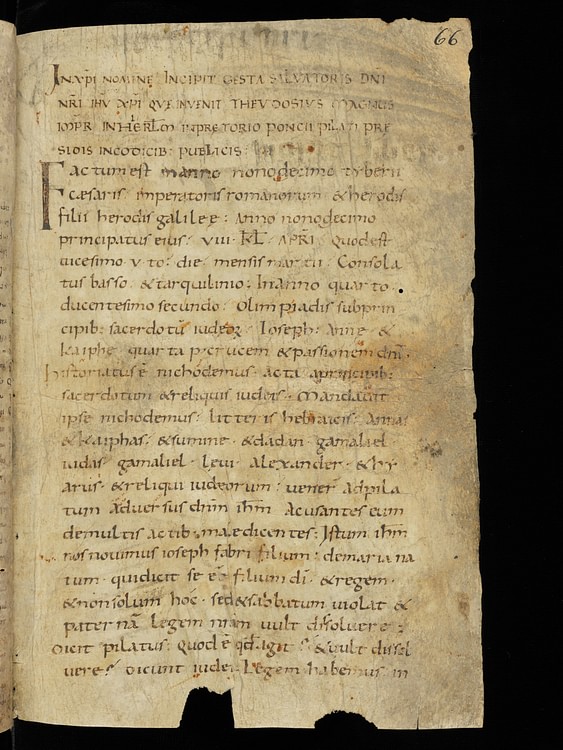 66
IN XPI NOMINE INCIPIT GESTA SALVATORIS DNI
NRI IHU XPI QUE INVENIT THEVDOSIUS MAGNUS
IMPR IN HIERLM IN PRETORIO PONCII PILATI PRE
SIDIS IN CODICIB: PUBLICIS:
Factum est in anno nono decimo tyberii
cæsaris imperatoris romanorum & herodis
filii herodis galileę: Anno nonodecimo
principatus eius: VIII KL APRI quod est
uicesimo v to: die mensis martii Consola
tus basso & tarquilinio: In anno quarto
ducentesimo secundo: Olimpiadis subprin
cipib: sacerdotū iudeoꝝ: Ioseph: Anne &
kaiphe quarta p crucem & passionem dni
historiatus ē nichodemus acta a principib:
sacerdotum & reliquis iudeis Mandauit
ipse nichodemus: litteris hebraicis Annas
& kaiphas: & summe & dadan gamaliel
iudas gamaliel leui Alexander & by
arus & reliqui iudeorum: uener ad pila
tum aduersus dnm ihm Acusantes eum
de multis actib maledicentes: Istum ihm
nos nouimus ioseph fabri filium: de maria na
tum qui dicit se eē filium di & regem
& non solum hoc sed & sabbatum uiolat &
paternā legem nram uult dissoluere:
Dicit pilatus: quod ē qd agit & uult dissol
uere dicunt iudei Legem habemus in